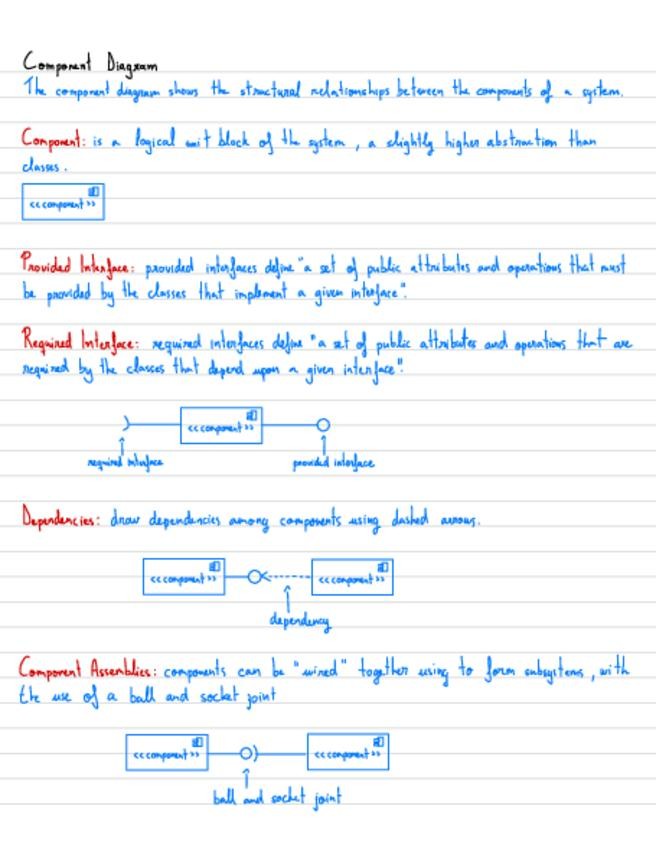 Component Diagram
The component diagram shows the structural relationships between the components of a system.
Component: is a logical unit block of the system, a slightly higher abstraction than
classes.
<<component>>
Provided Interface: provided interfaces define "a set of public attributes and operations that must
be provided by the classes that implement a given interface".
Required Interface: required interfaces define "a set of public attributes and operations that are
required by the classes that depend upon a given interface".
<<component>>
required interface provided interface
Dependencies: draw dependencies among components using dashed arrows.
<<component>> <<component>>
dependency
Component Assemblies: components can be "wired" together using to form subsystems, with
the use of a ball and socket joint
<<component>> <<component>>
ball and socket joint